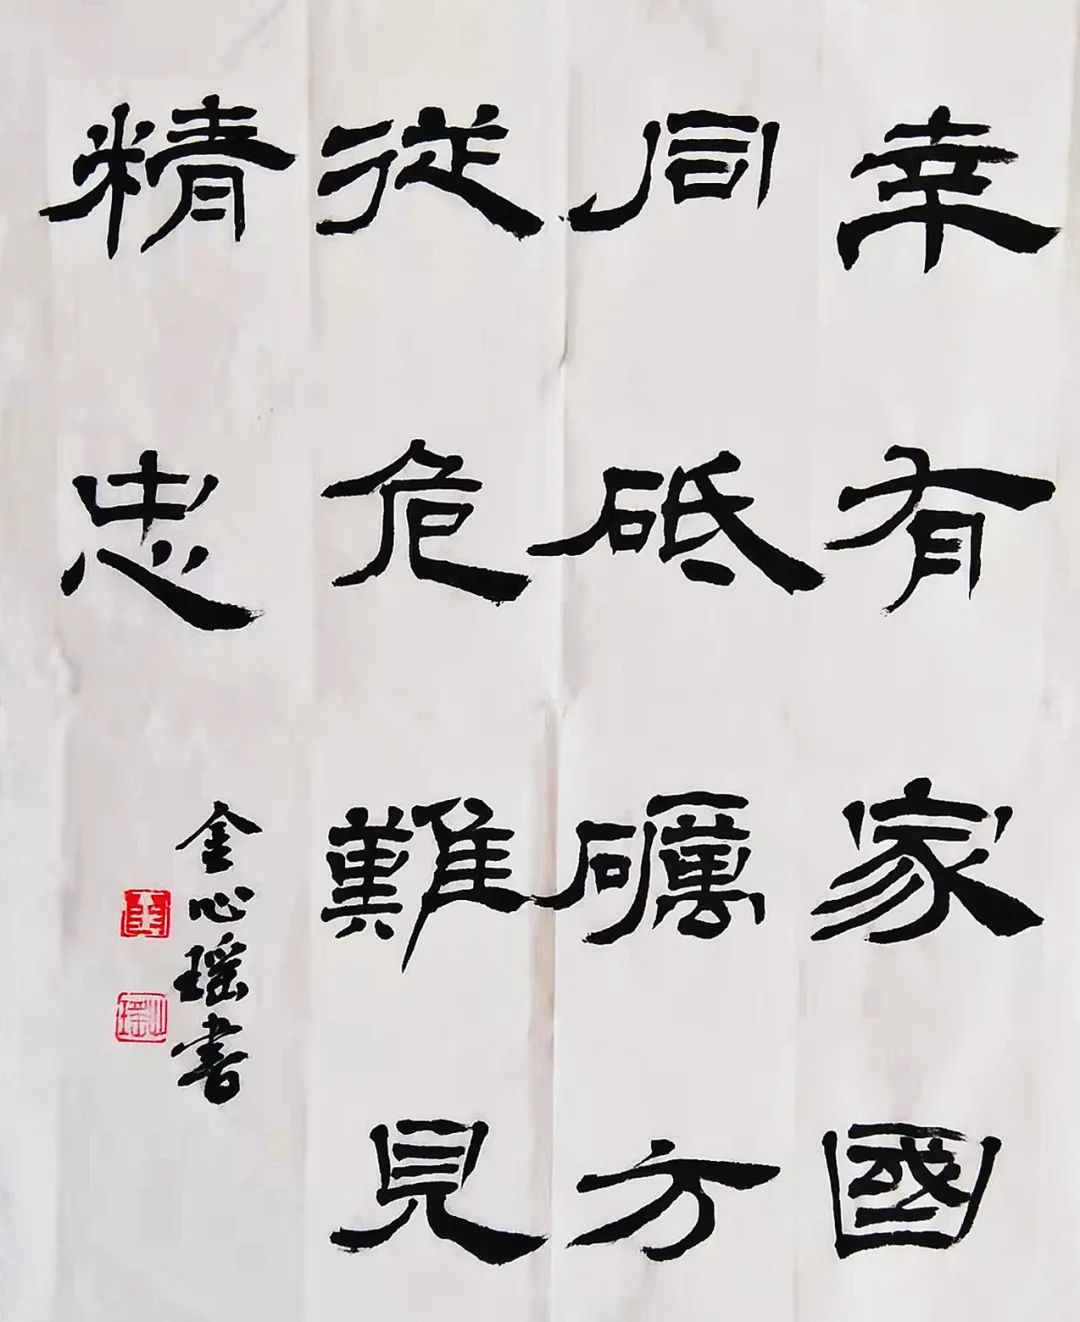 幸有家國
同砥礪方
從危難見
精忠
金心瑶書